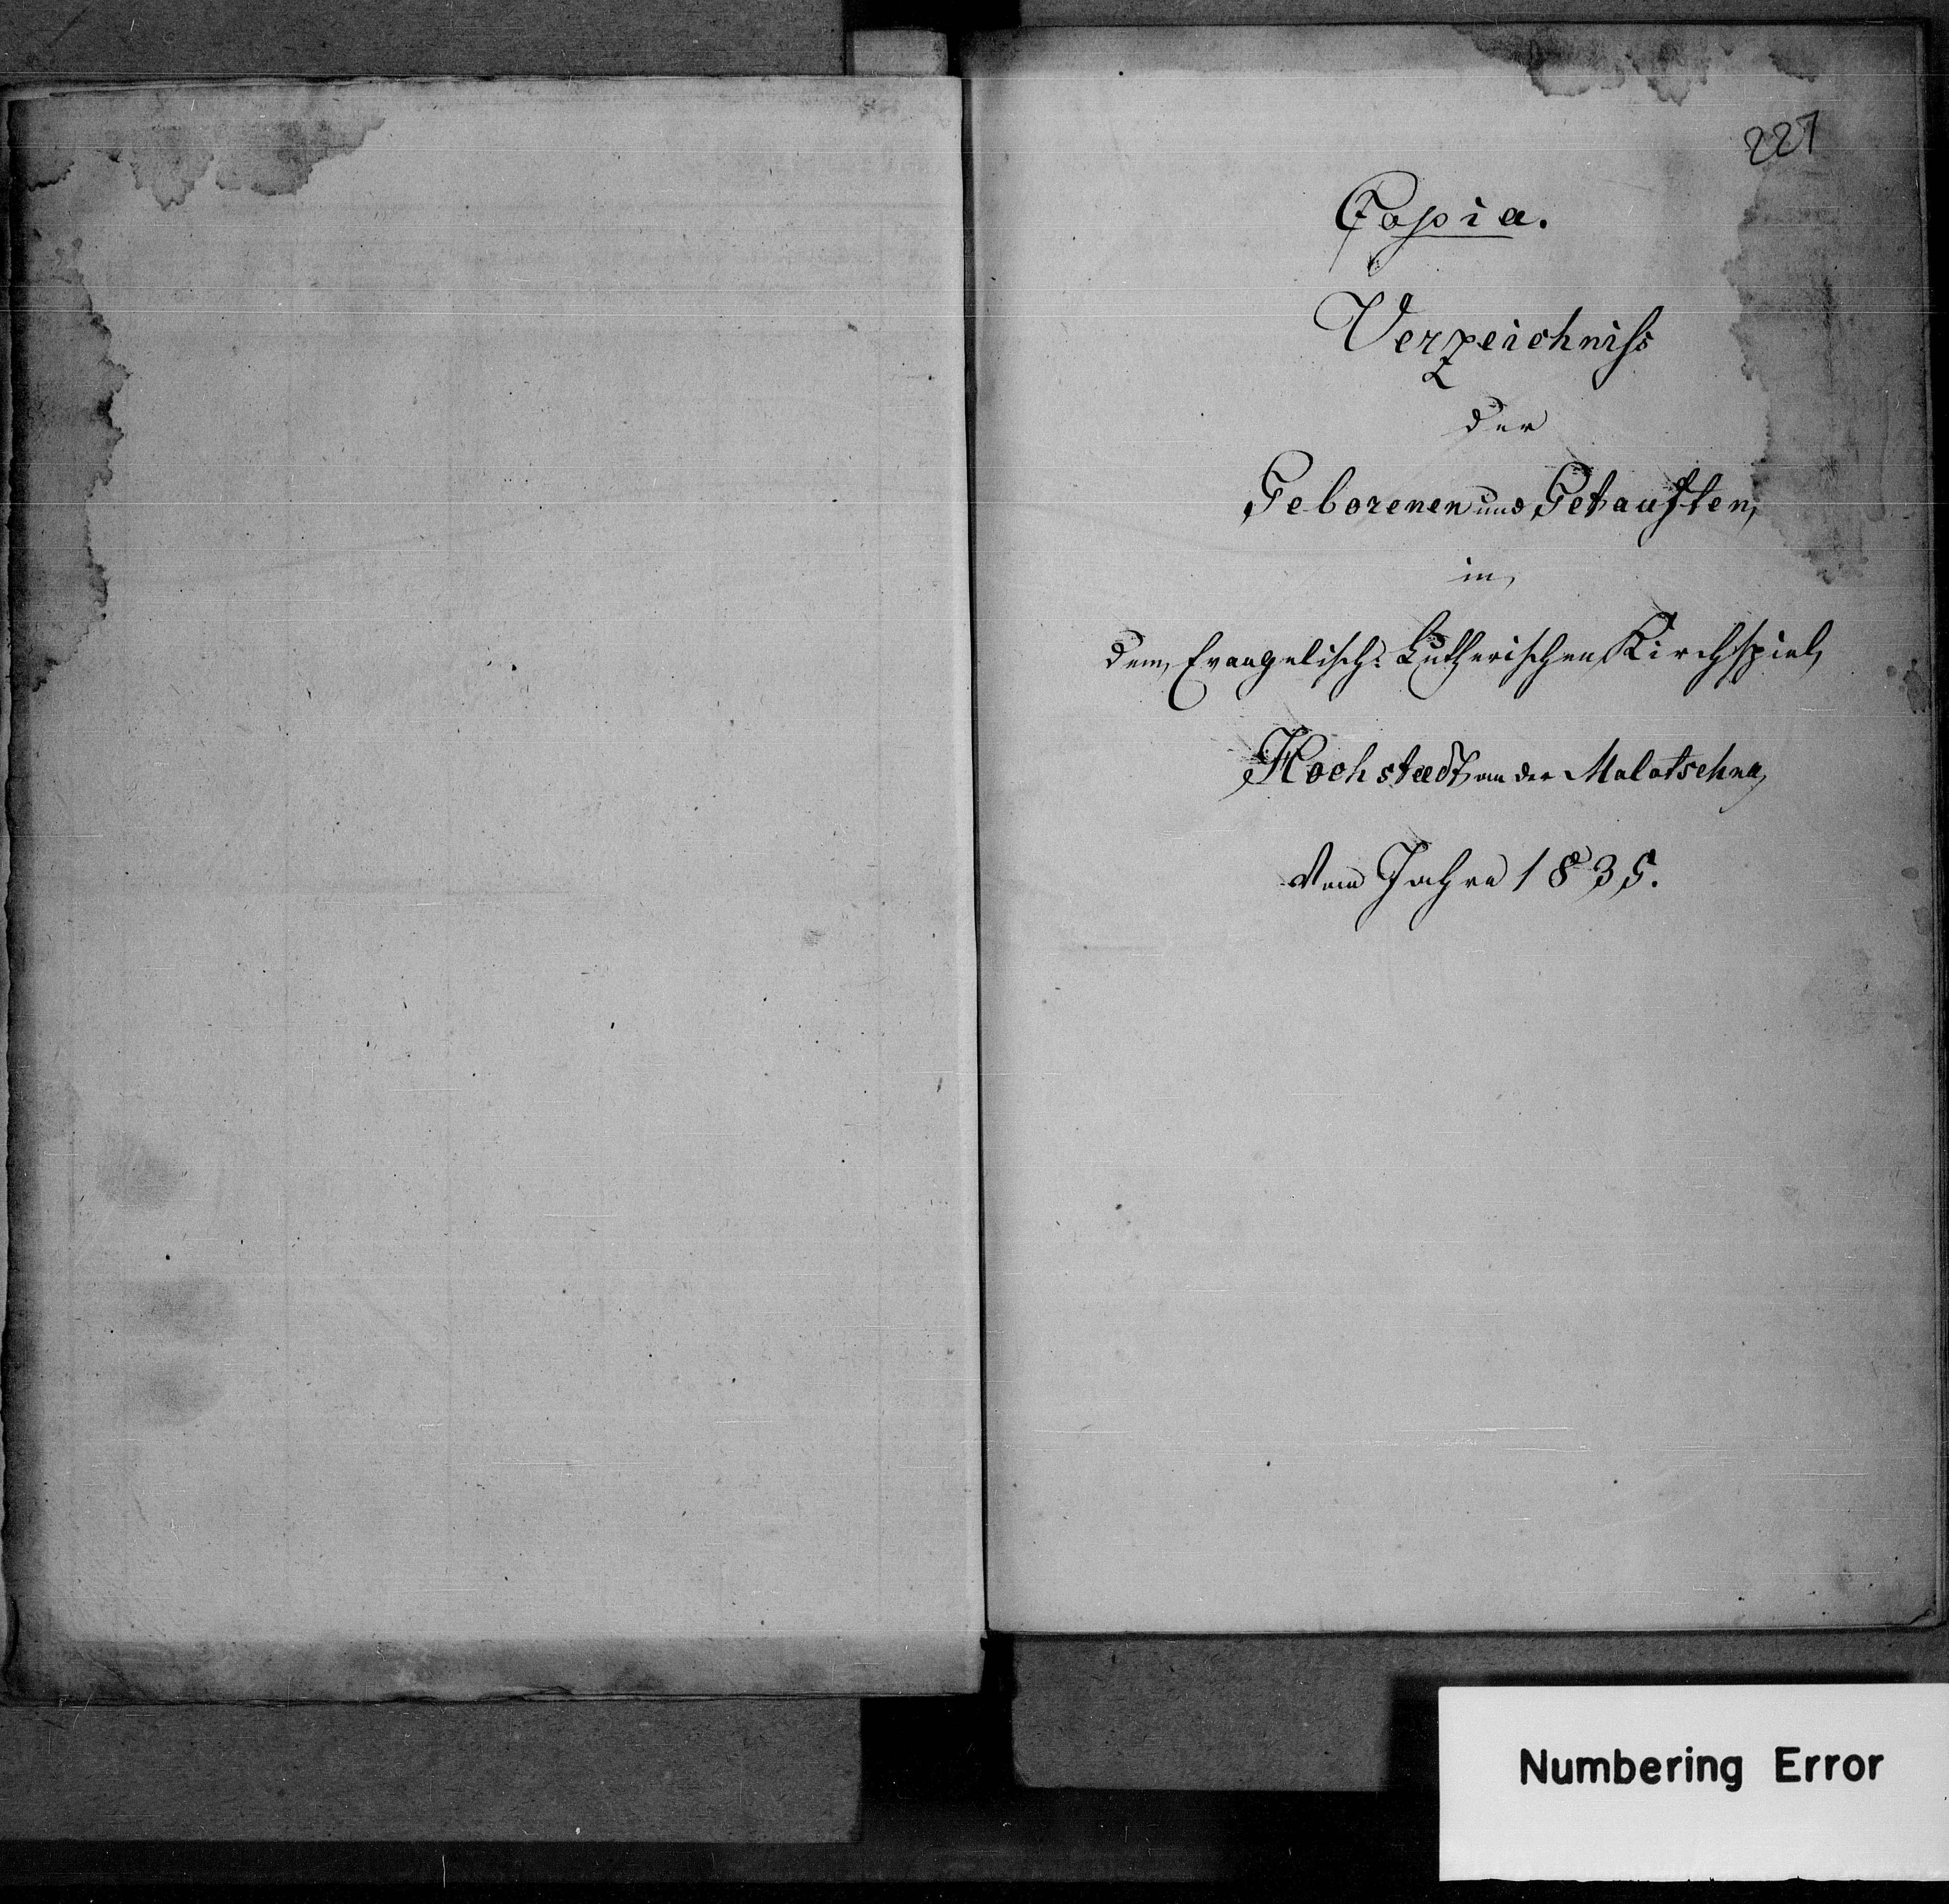 221
Copia.
Verzeichniſs
der
Geborenen und Getauften
in
dem Evangelisch-Lutherischen Kirchspiel
Hochstædt an der Malotschna
vom Jahre 1835.
Numbering Error